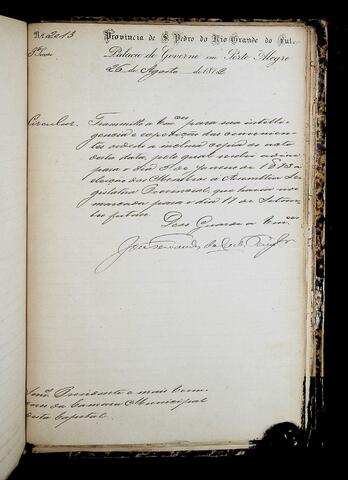 N. 2013 Provincia de S. Pedro do Rio Grande do Sul.
3ª Secção Palacio do Governo em Porto Alegre
26 de Agosto de 1872
Circular. Transmitto a Vmcês para sua intelli-
gencia e expedição das convenien-
tes ordens a inclusa copia do acto
desta data, pelo qual
para o dia de Janeiro 1873 a
eleição dos Membros a Assembléa Le-
gislativa Provincial, que havia sido
marcada para o dia 17 de Setem-
bro futuro.
Deos Guarde a Vmcês
José Fernandes da Costa Pereira Jr
Snrs. Presidente e mais Vere-
adores da Camara Municipal
desta Capital